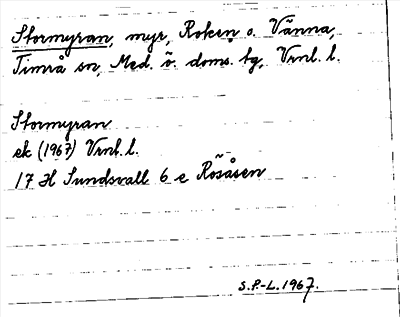 Stormyran, myr, Roken o. Vänna,
Timrå sn, Med. ö. doms. tg, Vrnl. l.
Stormyran
ek (1967) Vrnl. l.
17 H Sundsvall 6 e Rösåsen
S.P.-L. 1967.